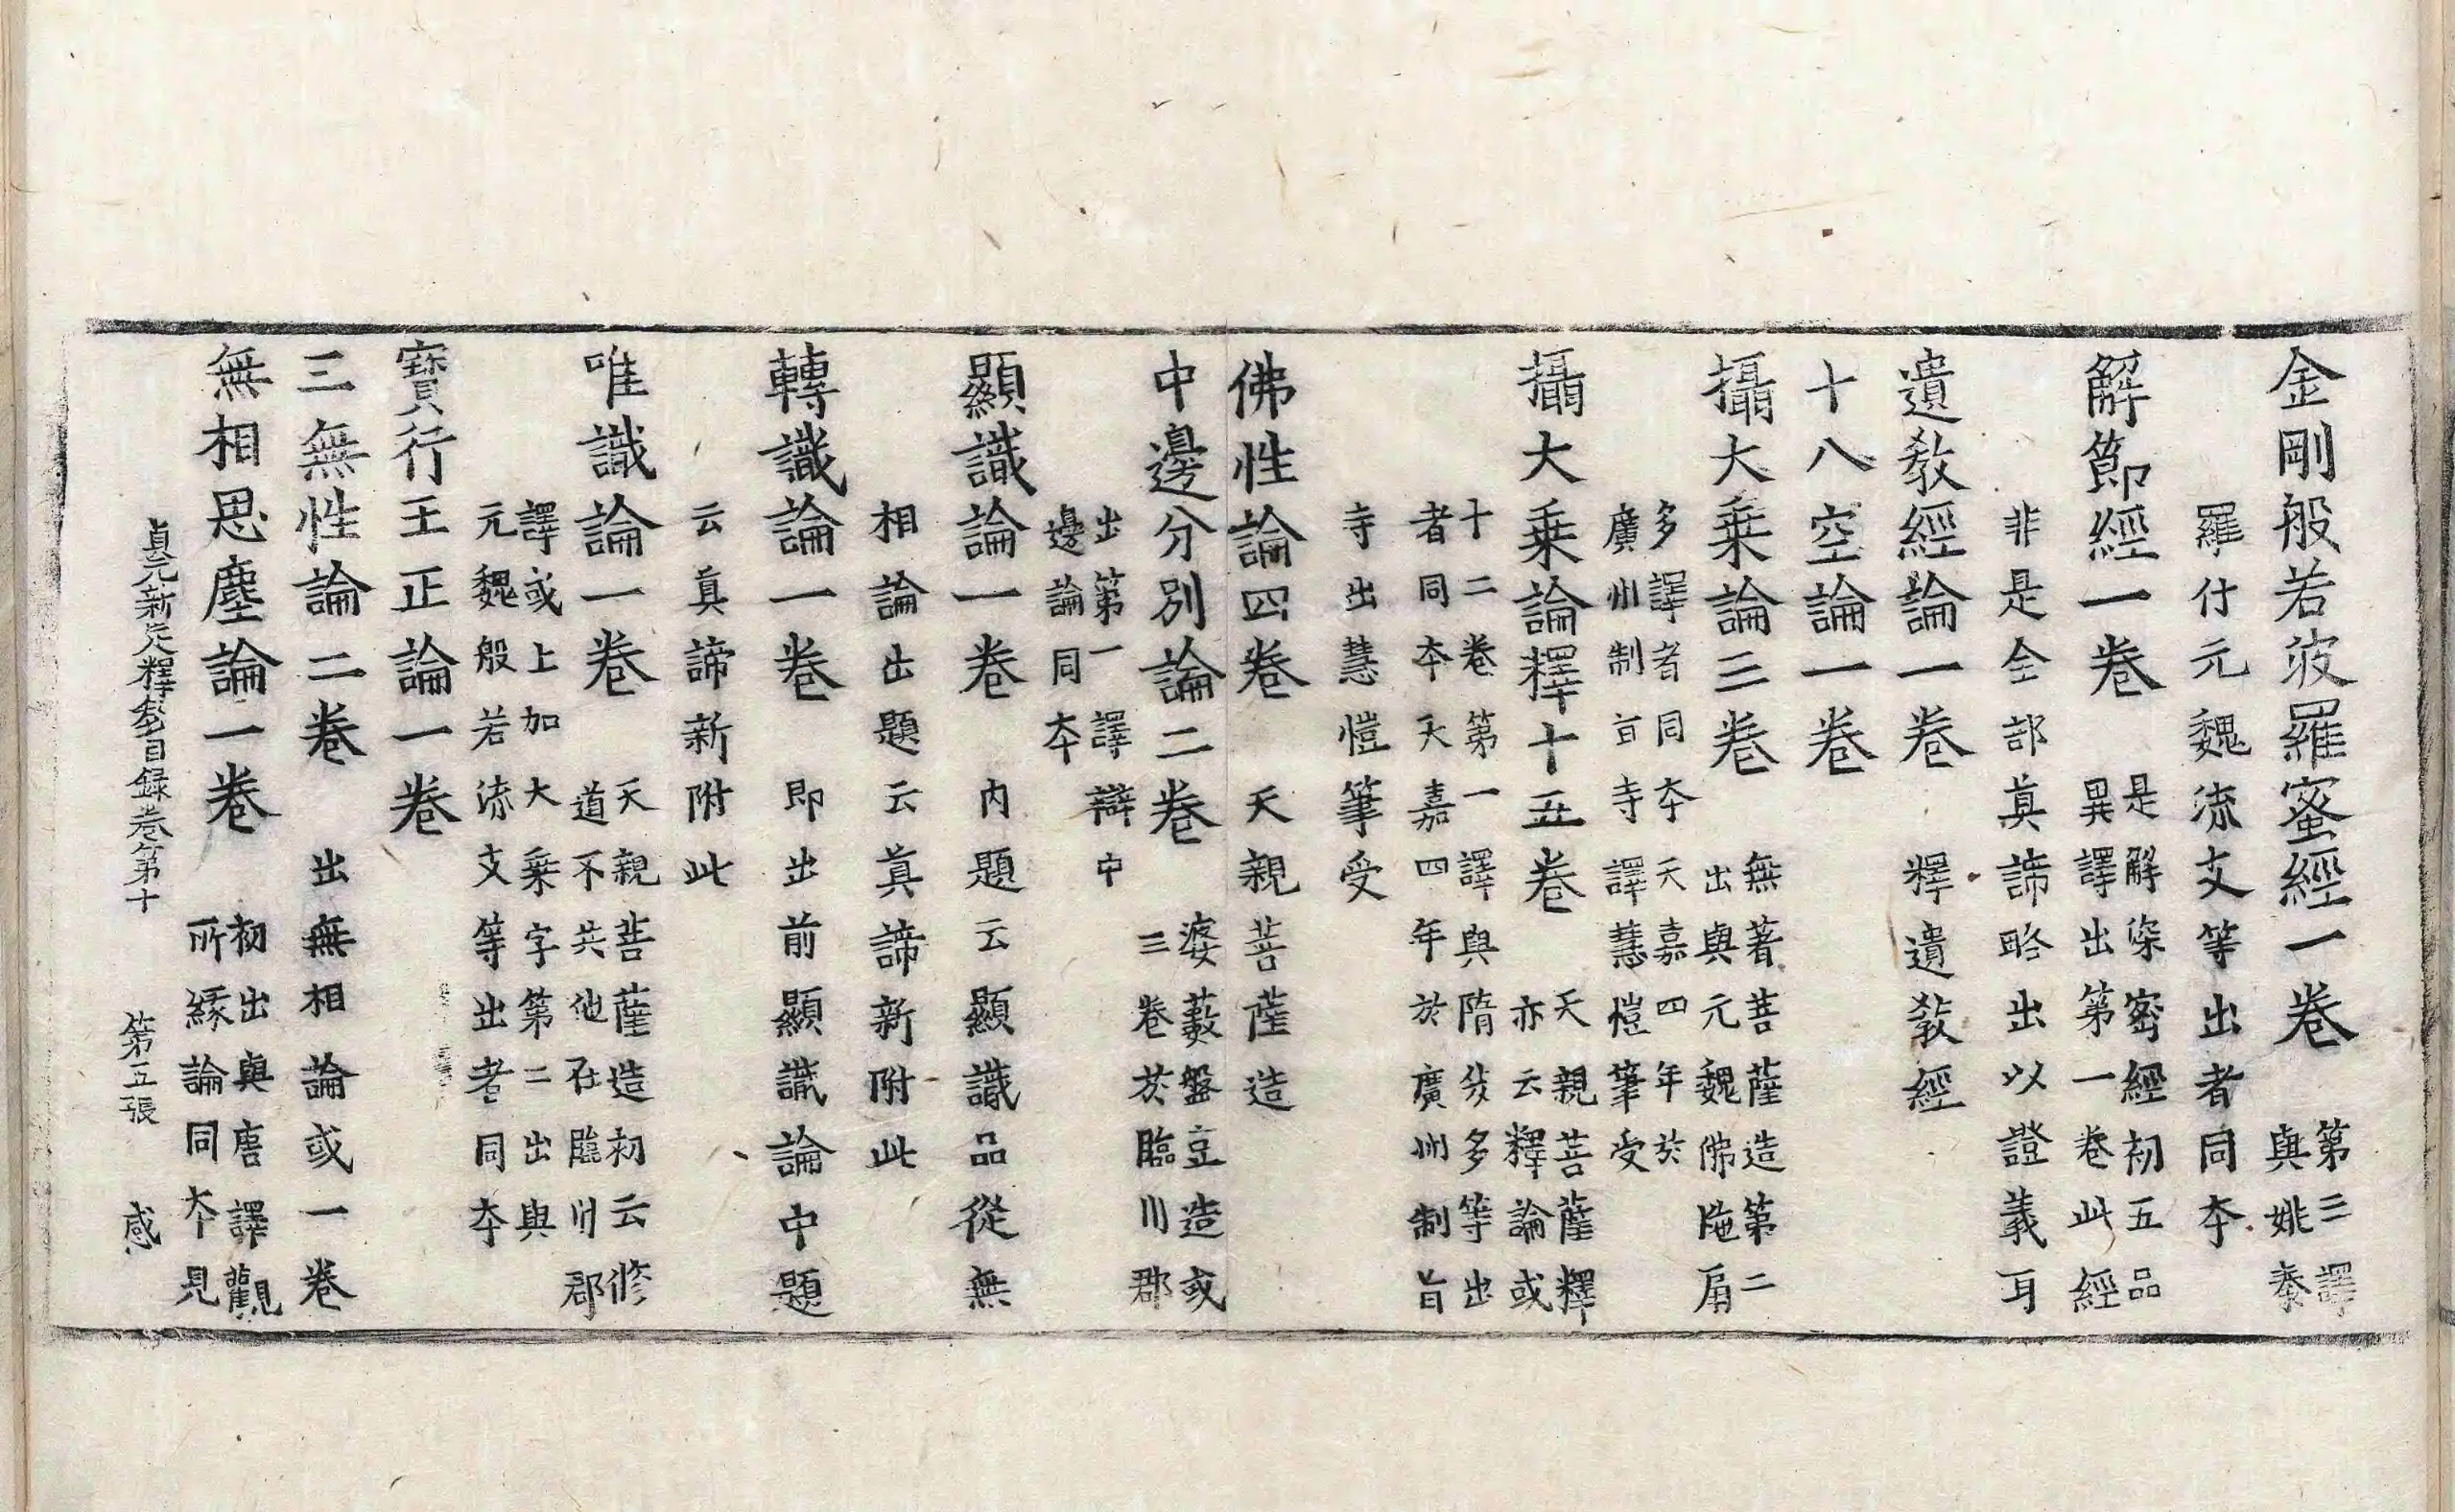 金剛般若波羅蜜經一卷 第三譯
與姚秦
羅什元魏流支等出者同夲
解節經一卷 是解深密經初五品
異譯出第一卷此經
非是全部真諦略出以證義耳
遺教經論一卷 釋遺教經
十八空論一卷
攝大乗論三卷 無著菩薩造第二
出與元魏佛陁扇
多譯者同夲天嘉四年於
廣州制旨寺譯慧愷筆受
攝大乗論釋十五卷 天親菩薩釋
亦云釋論或
十二卷第一譯與隋笈多等出
者同夲天嘉四年於廣州制旨
寺出慧愷筆受
佛性論四卷 天親菩薩造
中邊分別論二卷 婆藪盤豆造或
三卷於臨川郡
出第一譯辯中
邊論同夲
顯識論一卷 内題云顯識品從無
相論出題云真諦新附此
轉識論一卷 即出前顯識論中題
云真諦新附此
唯識論一卷 天親菩薩造初云修
道不共他在臨川郡
譯或上加大乗字第二出與
元魏般若流支等出者同夲
寶行王正論一卷
三無性論二卷 出無相論或一卷
無相思塵論一卷 初出與唐譯觀
所緣論同夲見
貞元新定釋教目録卷第十 第五張 感